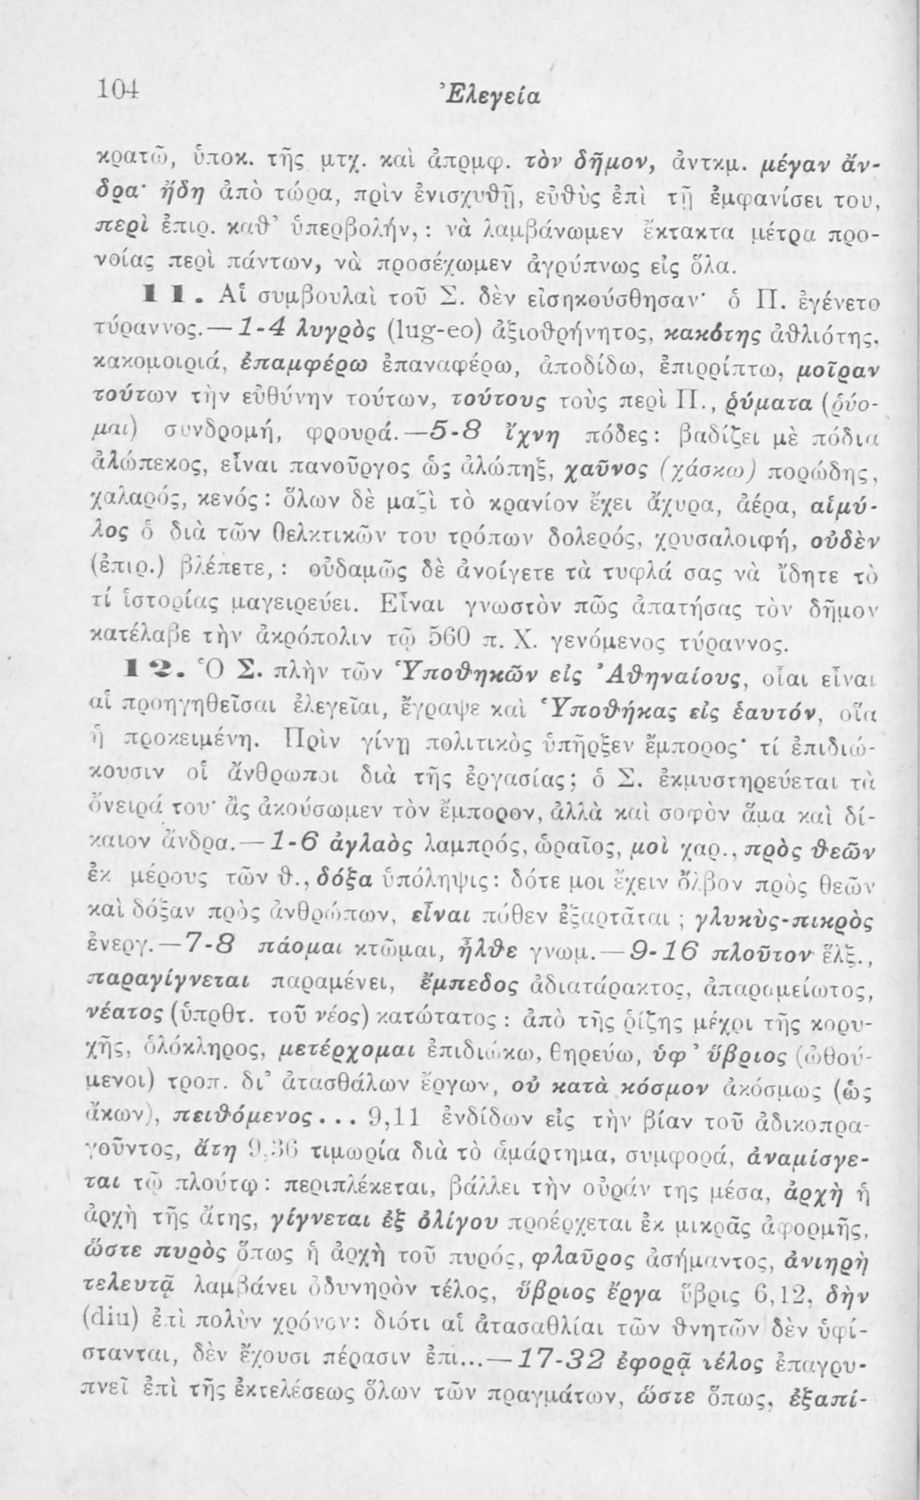 104
Ἐλεγεία
κρατῶ, ὑποκ. τῆς μτχ. καὶ ἀπρμφ. τὸν δῆμον, ἀντκμ. μέγαν ἄν-
δρα· ἤδη ἀπὸ τώρα, πρὶν ἐνισχυθῇ, εὐθὺς ἐπὶ τῇ ἐμφανίσει του,
περὶ ἐπιρ. καθ᾽ ὑπερβολήν, : νὰ λαμβάνωμεν ἔκτακτα μέτρα προ-
νοίας περὶ πάντων, νὰ προσέχωμεν ἀγρύπνως εἰς ὅλα.
11. Αἱ συμβουλαὶ τοῦ Σ. δὲν εἰσηκούσθησαν· ὁ Π. ἐγένετο
τύραννος.—1-4 λυγρὸς (lug-eo) ἀξιοθρήνητος, κακότης ἀθλιότης,
κακομοιριά, ἐπαμφέρω ἐπαναφέρω, ἀποδίδω, ἐπιρρίπτω, μοῖραν
τούτων τὴν εὐθύνην τούτων, τούτους τοὺς περὶ Π., ῥύματα (ῥύο-
μαι) συνδρομή, φρουρά.—5-8 ἴχνη πόδες: βαδίζει μὲ πόδια
ἀλώπεκος, εἶναι πανοῦργος ὡς ἀλώπηξ, χαῦνος (χάσκω) πορώδης,
χαλαρός, κενός : ὅλων δὲ μαζὶ τὸ κρανίον ἔχει ἄχυρα, ἀέρα, αἱμύ-
λος ὁ διὰ τῶν θελκτικῶν του τρόπων δολερός, χρυσαλοιφή, οὐδὲν
(ἐπιρ.) βλέπετε, : οὐδαμῶς δὲ ἀνοίγετε τὰ τυφλά σας νὰ ἴδητε τὸ
τί ἱστορίας μαγειρεύει. Εἶναι γνωστὸν πῶς ἀπατήσας τὸν δῆμον
κατέλαβε τὴν ἀκρόπολιν τῷ 560 π. Χ. γενόμενος τύραννος.
12. Ὁ Σ. πλὴν τῶν Ὑποθηκῶν εἰς Ἀθηναίους, οἷαι εἶναι
αἱ προηγηθεῖσαι ἐλεγεῖαι, ἔγραψε καὶ Ὑποθήκας εἰς ἑαυτόν, οἵα
ἡ προκειμένη. Πρὶν γίνῃ πολιτικὸς ὑπῆρξεν ἔμπορος· τί ἐπιδιώ-
κουσιν οἱ ἄνθρωποι διὰ τῆς ἐργασίας; ὁ Σ. ἐκμυστηρεύεται τὰ
ὄνειρά του· ἂς ἀκούσωμεν τὸν ἔμπορον, ἀλλὰ καὶ σοφὸν ἅμα καὶ δί-
καιον ἄνδρα.—1-6 ἀγλαὸς λαμπρός, ὡραῖος, μοὶ χαρ., πρὸς θεῶν
ἐκ μέρους τῶν θ., δόξα ὑπόληψις: δότε μοι ἔχειν ὄλβον πρὸς θεῶν
καὶ δόξαν πρὸς ἀνθρώπων, εἶναι πόθεν ἐξαρτᾶται ; γλυκὺς-πικρὸς
ἐνεργ.—7-8 πάομαι κτῶμαι, ἦλθε γνωμ.—9-16 πλοῦτον ἕλξ.,
παραγίγνεται παραμένει, ἔμπεδος ἀδιατάρακτος, ἀπαραμείωτος,
νέατος (ὑπρθτ. τοῦ νέος) κατώτατος : ἀπὸ τῆς ῥίζης μέχρι τῆς κορυ-
χῆς, ὁλόκληρος, μετέρχομαι ἐπιδιώκω, θηρεύω, ὑφ᾽ ὕβριος (ὠθού-
μενοι) τροπ. δι᾽ ἀτασθάλων ἔργων, οὐ κατὰ κόσμον ἀκόσμως (ὡς
ἄκων), πειθόμενος... 9,11 ἐνδίδων εἰς τὴν βίαν τοῦ ἀδικοπρα-
γοῦντος, ἄτη 9,36 τιμωρία διὰ τὸ ἁμάρτημα, συμφορά, ἀναμίσγε-
ται τῷ πλούτῳ : περιπλέκεται, βάλλει τὴν οὐράν της μέσα, ἀρχὴ ἡ
ἀρχὴ τῆς ἄτης, γίγνεται ἐξ ὀλίγου προέρχεται ἐκ μικρᾶς ἀφορμῆς,
ὥστε πυρὸς ὅπως ἡ ἀρχὴ τοῦ πυρός, φλαῦρος ἀσήμαντος, ἀνιηρὴ
τελευτᾷ λαμβάνει ὀδυνηρὸν τέλος, ὕβριος ἔργα ὕβρις 6,12, δὴν
(diu) ἐπὶ πολὺν χρόνον: διότι αἱ ἀτασθαλίαι τῶν θνητῶν δὲν ὑφί-
στανται, δὲν ἔχουσι πέρασιν ἐπι...—17-32 ἐφορᾷ τέλος ἐπαγρυ-
πνεῖ ἐπὶ τῆς ἐκτελέσεως ὅλων τῶν πραγμάτων, ὥστε ὅπως, ἐξαπί-